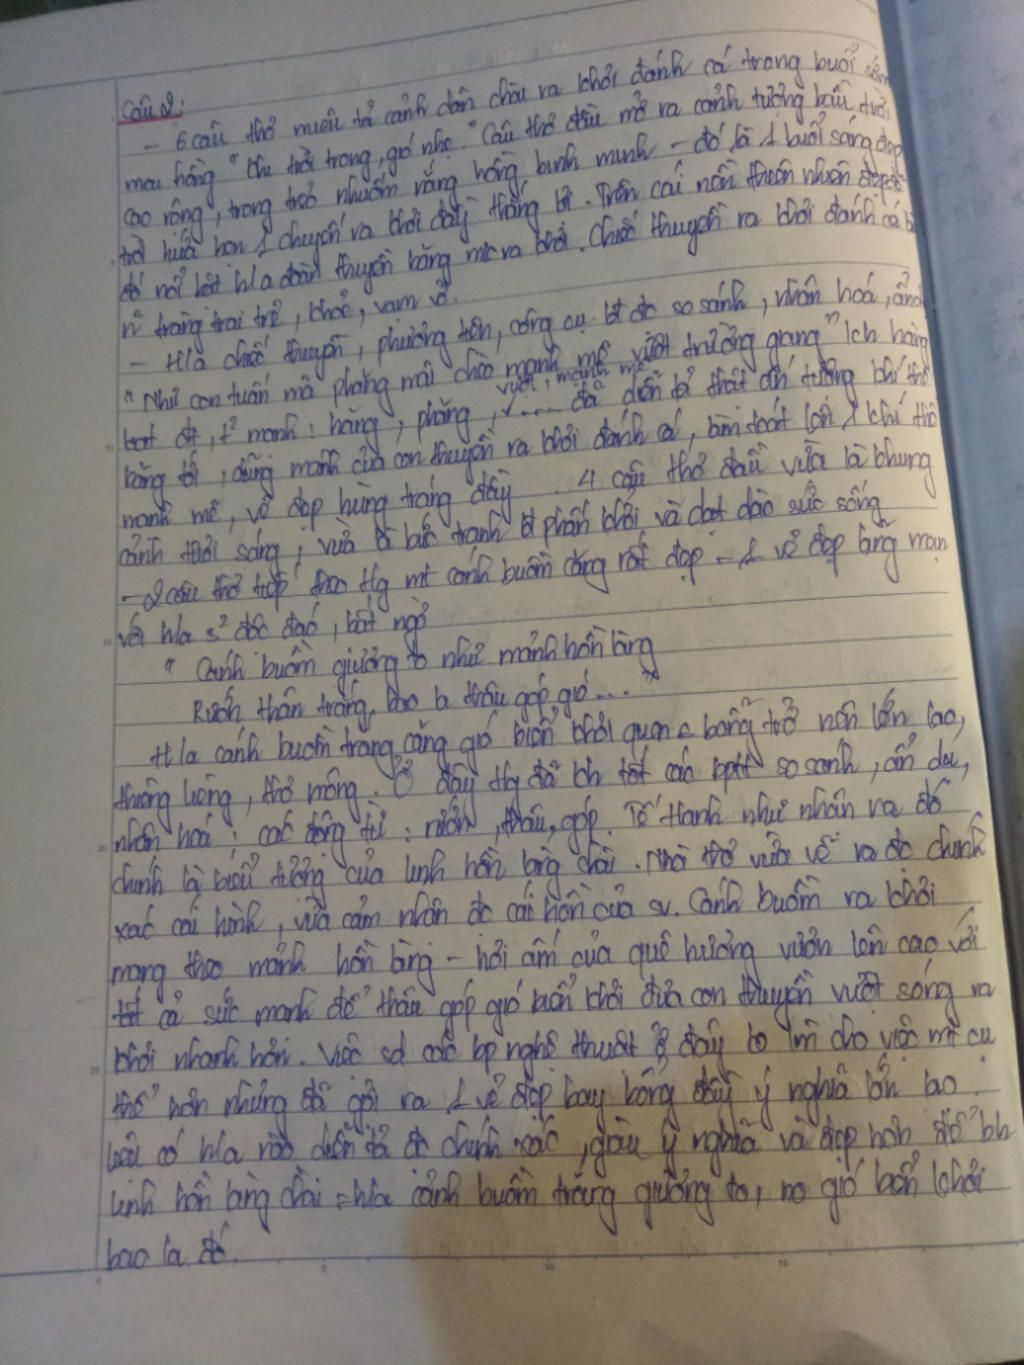 Câu 2:
- 6 câu thơ miêu tả cảnh dân chài ra khơi đánh cá trong buổi sớm
mai hồng " Khi trời trong, gió nhẹ. " Câu thơ đầu mở ra cảnh tượng bầu trời
cao rộng, trong trẻo nhuốm nắng hồng bình minh - đó là 1 buổi sáng đẹp
trời hứa hẹn 1 chuyến ra khơi đầy thắng lợi. Trên cái nền thiên nhiên đẹp đẽ
đó nổi bật h/a đoàn thuyền băng mk ra khơi. Chiếc thuyền ra khơi đánh cá bởi
trang trai trẻ, khoẻ, vạm vỡ.
- H/a chiếc thuyền, phương tiện, công cụ so sánh, nhân hoá,
" Như con tuấn mã phăng mái chèo mạnh mẽ vượt trường giang "
vượt, mạnh mẽ
mạnh : hăng, phăng, .... đã diễn tả thật ấn tượng khí thế
băng tới, dũng mãnh của con thuyền ra khơi đánh cá, làm toát lên 1 khí thế
mạnh mẽ, vẻ đẹp hùng tráng đầy . 4 câu thơ đầu vừa là khung
cảnh tươi sáng, vừa là bức tranh phấn khởi và dạt dào sức sống
- 2 câu thơ tiếp theo t/g mt cánh buồm căng rất đẹp - 1 vẻ đẹp lãng mạn
với h/a s² độc đáo, bất ngờ
" Cánh buồm giương to như mảnh hồn làng
Rướn thân trắng bao la thâu góp gió... "
H/a cánh buồm trắng căng gió biển khơi quen bỗng trở nên lớn lao,
thiêng liêng, thơ mộng. Ở đây t/g đã kh tốt các bptt so sánh, ẩn dụ,
nhân hoá : các động từ : rướn, thâu, góp. Tế Hanh như nhận ra đó
chính là biểu tượng của linh hồn làng chài. Nhà thơ vừa vẽ ra đc chính
xác cái hình, vừa cảm nhận đc cái hồn của sv. Cánh buồm ra khơi
mang theo mảnh hồn làng - hơi ấm của quê hương vươn lên cao với
tất cả sức mạnh để thâu góp gió biển khơi đưa con thuyền vượt sóng ra
khơi nhanh hơn. Việc sd các bp nghệ thuật ở đây ko lm cho việc mt cụ
thể hơn nhưng đã gợi ra 1 vẻ đẹp bay bổng đầy ý nghĩa lớn lao.
Liệu có h/a nào diễn tả đc chính xác, giàu ý nghĩa và đẹp hơn để bh
linh hồn làng chài = h/a cánh buồm trắng giương to, no gió biển khơi
bao la đó.